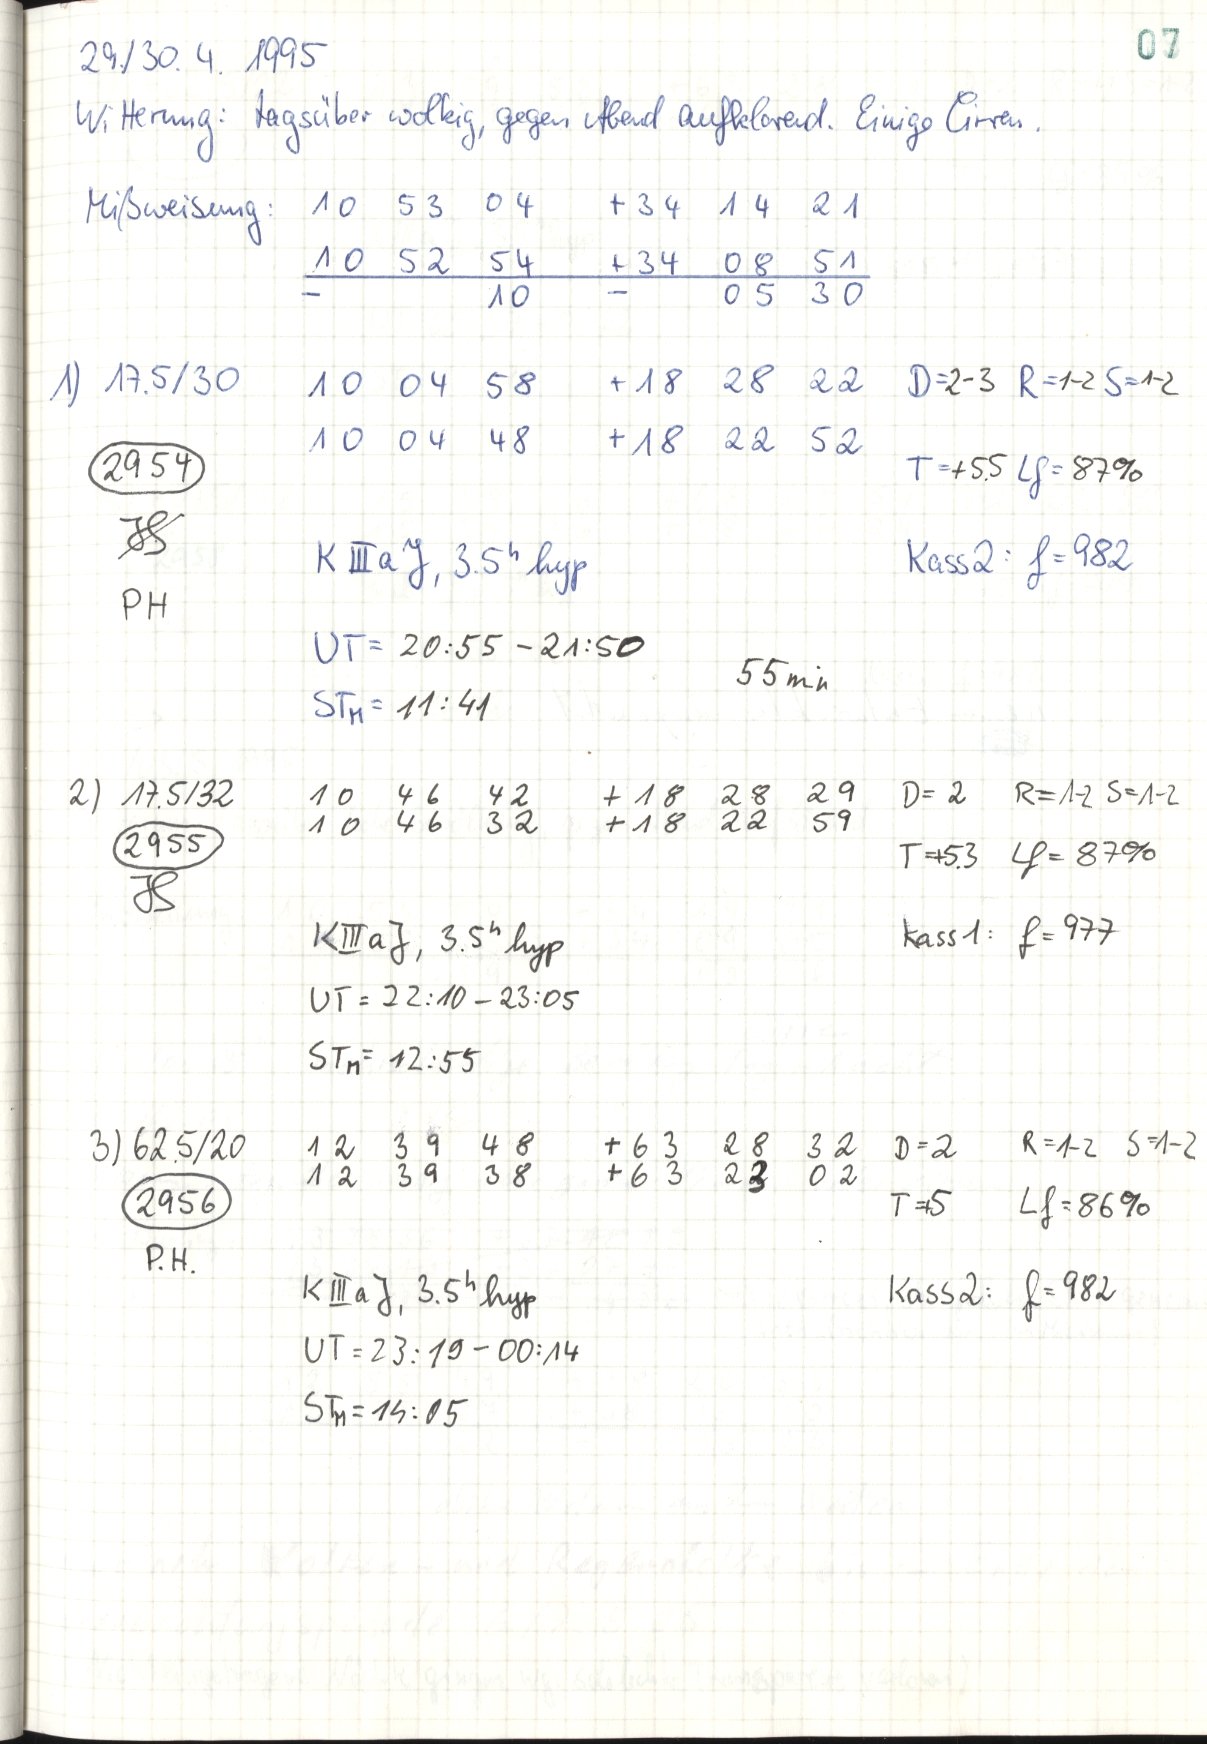 07
29./30. 4. 1995
Witterung: tagsüber wolkig, gegen Abend aufklarend. Einige Cirren.
Mißweisung: 10 53 04 +34 14 21
10 52 54 +34 08 51
– 10 – 05 30
1) 17.5/30 10 04 58 +18 28 22 D=2-3 R=1-2 S=1-2
10 04 48 +18 22 52
2954 T=+5.5 Lf=87%
JS
PH
K III a J, 3.5h hyp Kass2: f=982
UT= 20:55 – 21:50
55 min
STM= 11:41
2) 17.5/32 10 46 42 +18 28 29 D=2 R=1-2 S=1-2
10 46 32 +18 22 59
2955 T=+5.3 Lf=87%
JS
K III a J, 3.5h hyp Kass1: f=977
UT= 22:10 – 23:05
STM= 12:55
3) 62.5/20 12 39 48 +63 28 32 D=2 R=1-2 S=1-2
12 39 38 +63 23 02
2956 T=+5 Lf=86%
P.H.
K III a J, 3.5h hyp Kass2: f=982
UT=23:19 – 00:14
STM=14:05